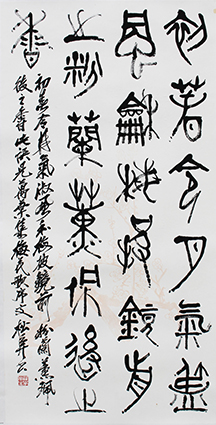 初春令月氣淑
風龢梅披鏡前
之粉蘭薰佩後之
香
初春令月氣淑風和梅披鏡前之粉蘭薰珮
後之香此萬葉集梅花歌序文